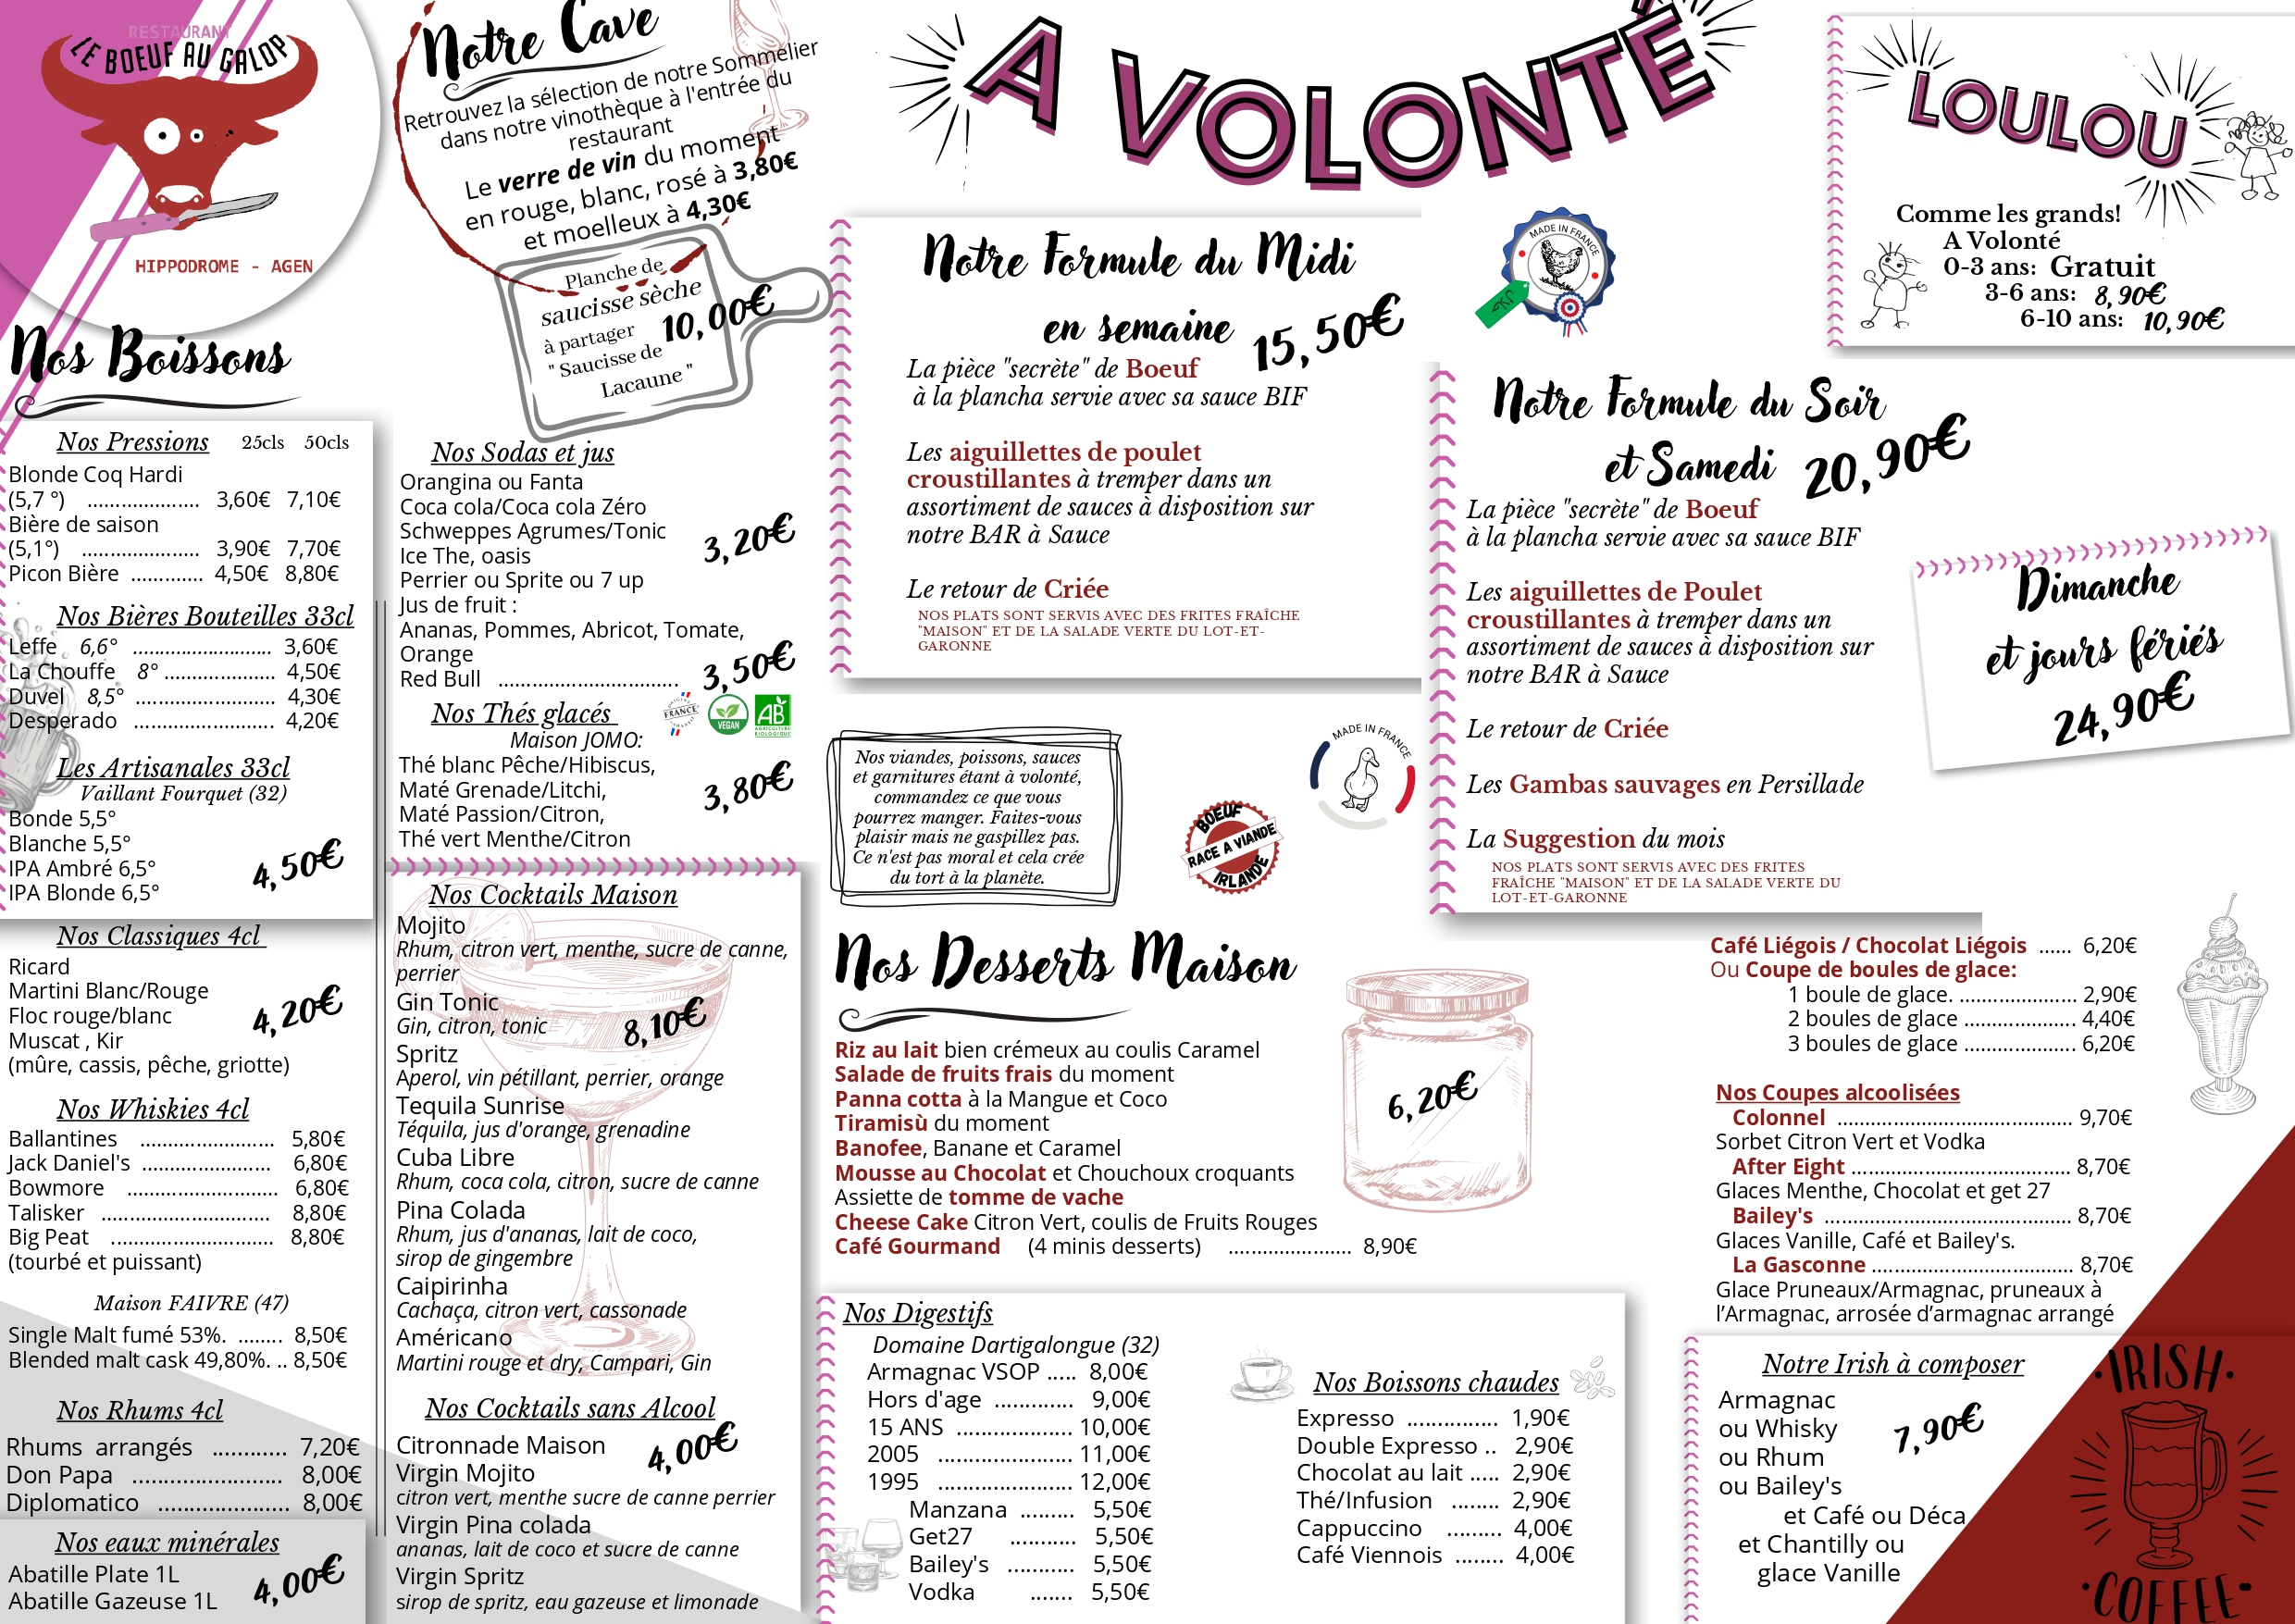 RESTAURANT
LE BOEUF AU GALOP
HIPPODROME - AGEN
Nos Boissons
Nos Pressions 25cls 50cls
Blonde Coq Hardi
(5,7 °) .................... 3,60€ 7,10€
Bière de saison
(5,1°) ..................... 3,90€ 7,70€
Picon Bière ............. 4,50€ 8,80€
Nos Bières Bouteilles 33cl
Leffe 6,6° ......................... 3,60€
La Chouffe 8° .................... 4,50€
Duvel 8,5° ......................... 4,30€
Desperado ......................... 4,20€
Les Artisanales 33cl
Vaillant Fourquet (32)
Bonde 5,5°
Blanche 5,5°
IPA Ambré 6,5°
IPA Blonde 6,5°
4,50€
Nos Classiques 4cl
Ricard
Martini Blanc/Rouge
Floc rouge/blanc
Muscat , Kir
(mûre, cassis, pêche, griotte)
4,20€
Nos Whiskies 4cl
Ballantines ........................ 5,80€
Jack Daniel's ....................... 6,80€
Bowmore ........................... 6,80€
Talisker .............................. 8,80€
Big Peat ............................. 8,80€
(tourbé et puissant)
Maison FAIVRE (47)
Single Malt fumé 53%. ........ 8,50€
Blended malt cask 49,80%. .. 8,50€
Nos Rhums 4cl
Rhums arrangés ............ 7,20€
Don Papa ........................ 8,00€
Diplomatico ..................... 8,00€
Nos eaux minérales
Abatille Plate 1L
Abatille Gazeuse 1L
4,00€
Notre Cave
Retrouvez la sélection de notre Sommelier
dans notre vinothèque à l'entrée du
restaurant
Le verre de vin du moment
en rouge, blanc, rosé à 3,80€
et moelleux à 4,30€
Planche de
saucisse sèche
à partager
" Saucisse de
Lacaune "
10,00€
Nos Sodas et jus
Orangina ou Fanta
Coca cola/Coca cola Zéro
Schweppes Agrumes/Tonic
Ice The, oasis
Perrier ou Sprite ou 7 up
3,20€
Jus de fruit :
Ananas, Pommes, Abricot, Tomate,
Orange
Red Bull ................................ 3,50€
Nos Thés glacés
FRANCE
VEGAN
AB
AGRICULTURE
BIOLOGIQUE
Maison JOMO:
Thé blanc Pêche/Hibiscus,
Maté Grenade/Litchi,
Maté Passion/Citron,
Thé vert Menthe/Citron
3,80€
Nos Cocktails Maison
Mojito
Rhum, citron vert, menthe, sucre de canne,
perrier
Gin Tonic
Gin, citron, tonic
8,10€
Spritz
Aperol, vin pétillant, perrier, orange
Tequila Sunrise
Téquila, jus d'orange, grenadine
Cuba Libre
Rhum, coca cola, citron, sucre de canne
Pina Colada
Rhum, jus d'ananas, lait de coco,
sirop de gingembre
Caipirinha
Cachaça, citron vert, cassonade
Américano
Martini rouge et dry, Campari, Gin
Nos Cocktails sans Alcool
4,00€
Citronnade Maison
Virgin Mojito
citron vert, menthe sucre de canne perrier
Virgin Pina colada
ananas, lait de coco et sucre de canne
Virgin Spritz
sirop de spritz, eau gazeuse et limonade
A VOLONTÉ
Notre Formule du Midi
en semaine 15,50€
La pièce "secrète" de Boeuf
à la plancha servie avec sa sauce BIF
Les aiguillettes de poulet
croustillantes à tremper dans un
assortiment de sauces à disposition sur
notre BAR à Sauce
Le retour de Criée
NOS PLATS SONT SERVIS AVEC DES FRITES FRAÎCHE
"MAISON" ET DE LA SALADE VERTE DU LOT-ET-
GARONNE
Nos viandes, poissons, sauces
et garnitures étant à volonté,
commandez ce que vous
pourrez manger. Faites-vous
plaisir mais ne gaspillez pas.
Ce n'est pas moral et cela crée
du tort à la planète.
BOEUF
RACE A VIANDE
IRLANDE
MADE IN FRANCE
MADE IN FRANCE
LOULOU
Comme les grands!
A Volonté
0-3 ans: Gratuit
3-6 ans: 8,90€
6-10 ans: 10,90€
Notre Formule du Soir
et Samedi 20,90€
La pièce "secrète" de Boeuf
à la plancha servie avec sa sauce BIF
Les aiguillettes de Poulet
croustillantes à tremper dans un
assortiment de sauces à disposition sur
notre BAR à Sauce
Le retour de Criée
Les Gambas sauvages en Persillade
La Suggestion du mois
NOS PLATS SONT SERVIS AVEC DES FRITES
FRAÎCHE "MAISON" ET DE LA SALADE VERTE DU
LOT-ET-GARONNE
Dimanche
et jours fériés
24,90€
Nos Desserts Maison
Riz au lait bien crémeux au coulis Caramel
Salade de fruits frais du moment
Panna cotta à la Mangue et Coco
Tiramisù du moment
Banofee, Banane et Caramel
Mousse au Chocolat et Chouchoux croquants
Assiette de tomme de vache
Cheese Cake Citron Vert, coulis de Fruits Rouges
Café Gourmand (4 minis desserts) ...................... 8,90€
6,20€
Café Liégois / Chocolat Liégois ...... 6,20€
Ou Coupe de boules de glace:
1 boule de glace. ..................... 2,90€
2 boules de glace .................... 4,40€
3 boules de glace .................... 6,20€
Nos Coupes alcoolisées
Colonnel .......................................... 9,70€
Sorbet Citron Vert et Vodka
After Eight ....................................... 8,70€
Glaces Menthe, Chocolat et get 27
Bailey's ............................................ 8,70€
Glaces Vanille, Café et Bailey's.
La Gasconne .................................... 8,70€
Glace Pruneaux/Armagnac, pruneaux à
l’Armagnac, arrosée d’armagnac arrangé
Nos Digestifs
Domaine Dartigalongue (32)
Armagnac VSOP ..... 8,00€
Hors d'age ............. 9,00€
15 ANS ................... 10,00€
2005 ...................... 11,00€
1995 ...................... 12,00€
Manzana ......... 5,50€
Get27 ........... 5,50€
Bailey's ........... 5,50€
Vodka ....... 5,50€
Nos Boissons chaudes
Expresso ............... 1,90€
Double Expresso .. 2,90€
Chocolat au lait ..... 2,90€
Thé/Infusion ........ 2,90€
Cappuccino ......... 4,00€
Café Viennois ........ 4,00€
Notre Irish à composer
Armagnac
ou Whisky
ou Rhum
ou Bailey's
7,90€
et Café ou Déca
et Chantilly ou
glace Vanille
IRISH
COFFEE